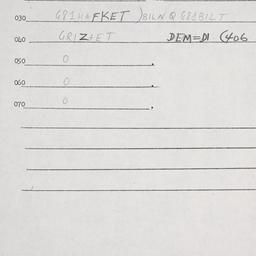 030 G81HAFKET )BILN Q G8LBILT
040 GRIZHET DEM=DI (406
050 0
060 0
070 0